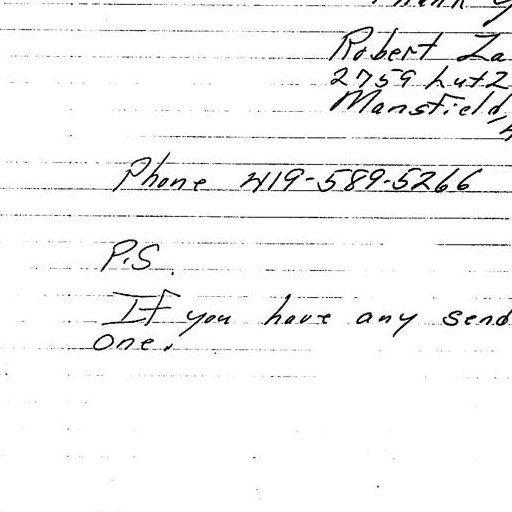 Thank
Robert La
2759 Lutz
Mansfield,
Phone 419-589-5266
P.S.
If you have any send
one.